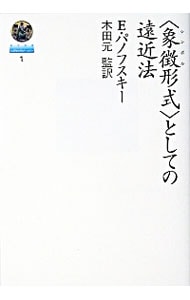 〈象徴形式〉としての
シンボル
遠近法
E・パノフスキー
木田元 監訳
1